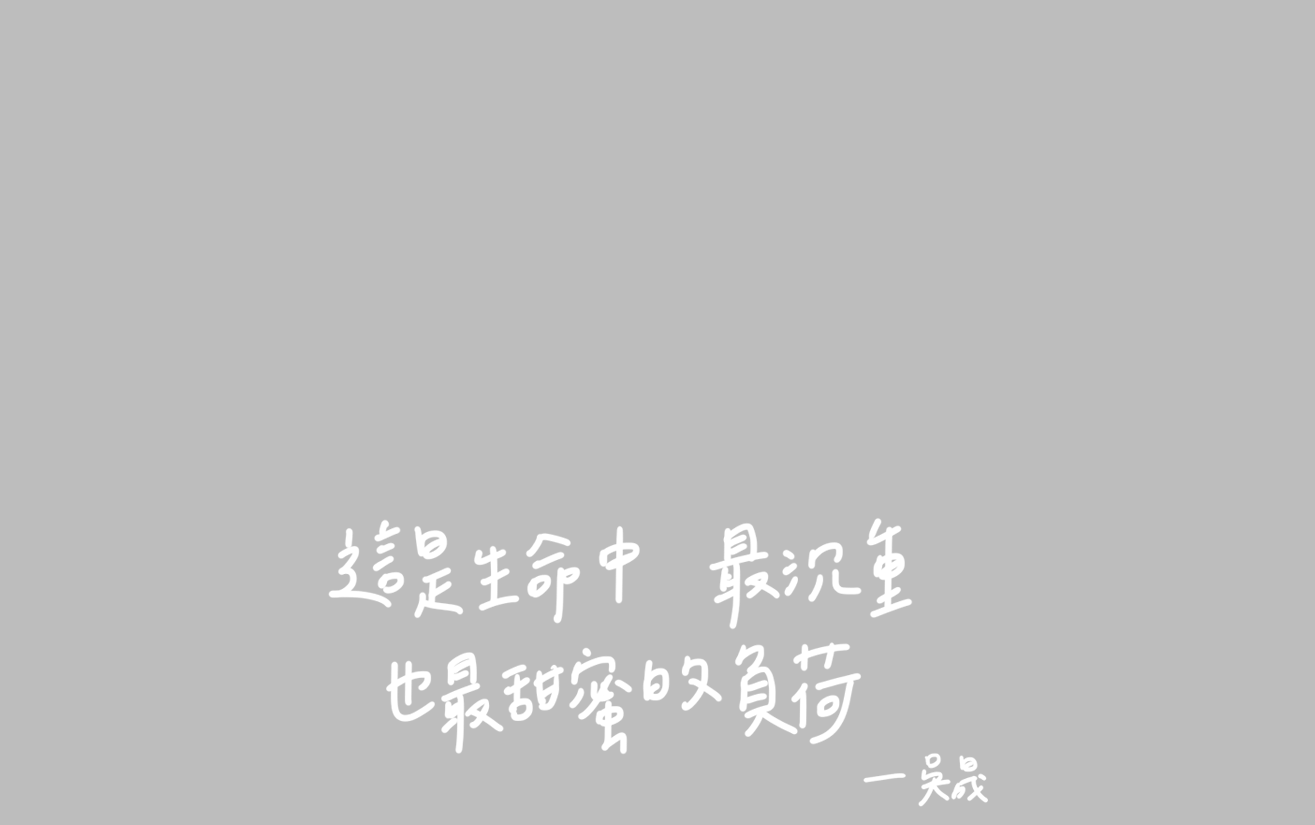 這是生命中 最沉重
也最甜蜜的負荷
—吳晟